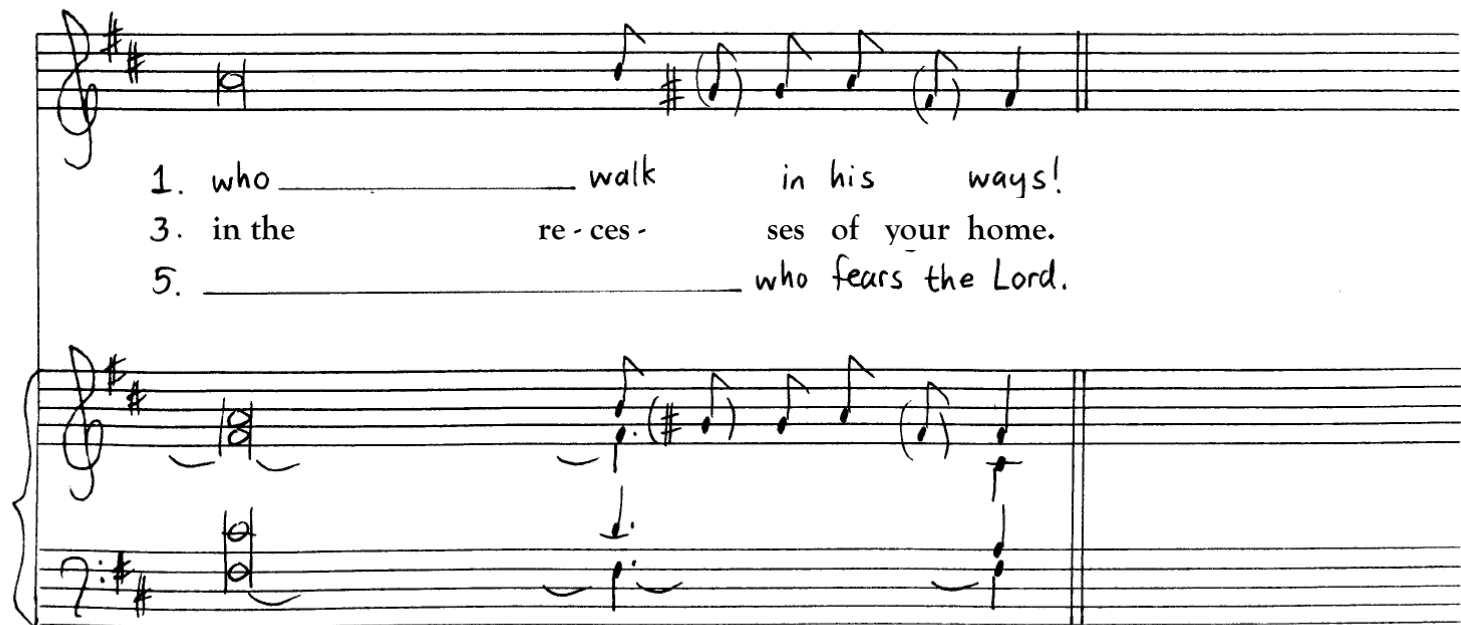 1. who __________ walk in his ways!
3. in the re - ces - ses of your home.
5. __________ who fears the Lord.